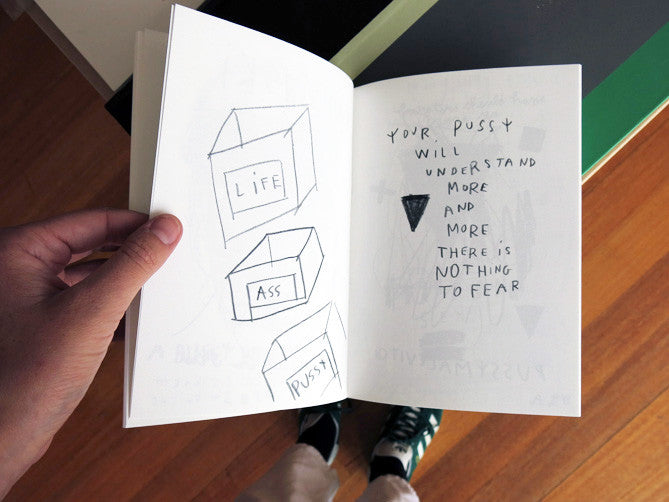 LiFE
ASS
PUSSY
YOUR, PUSSY
WILL
UNDERSTAND
MORE
AND
MORE
THERE iS
NOTHING
TO FEAR